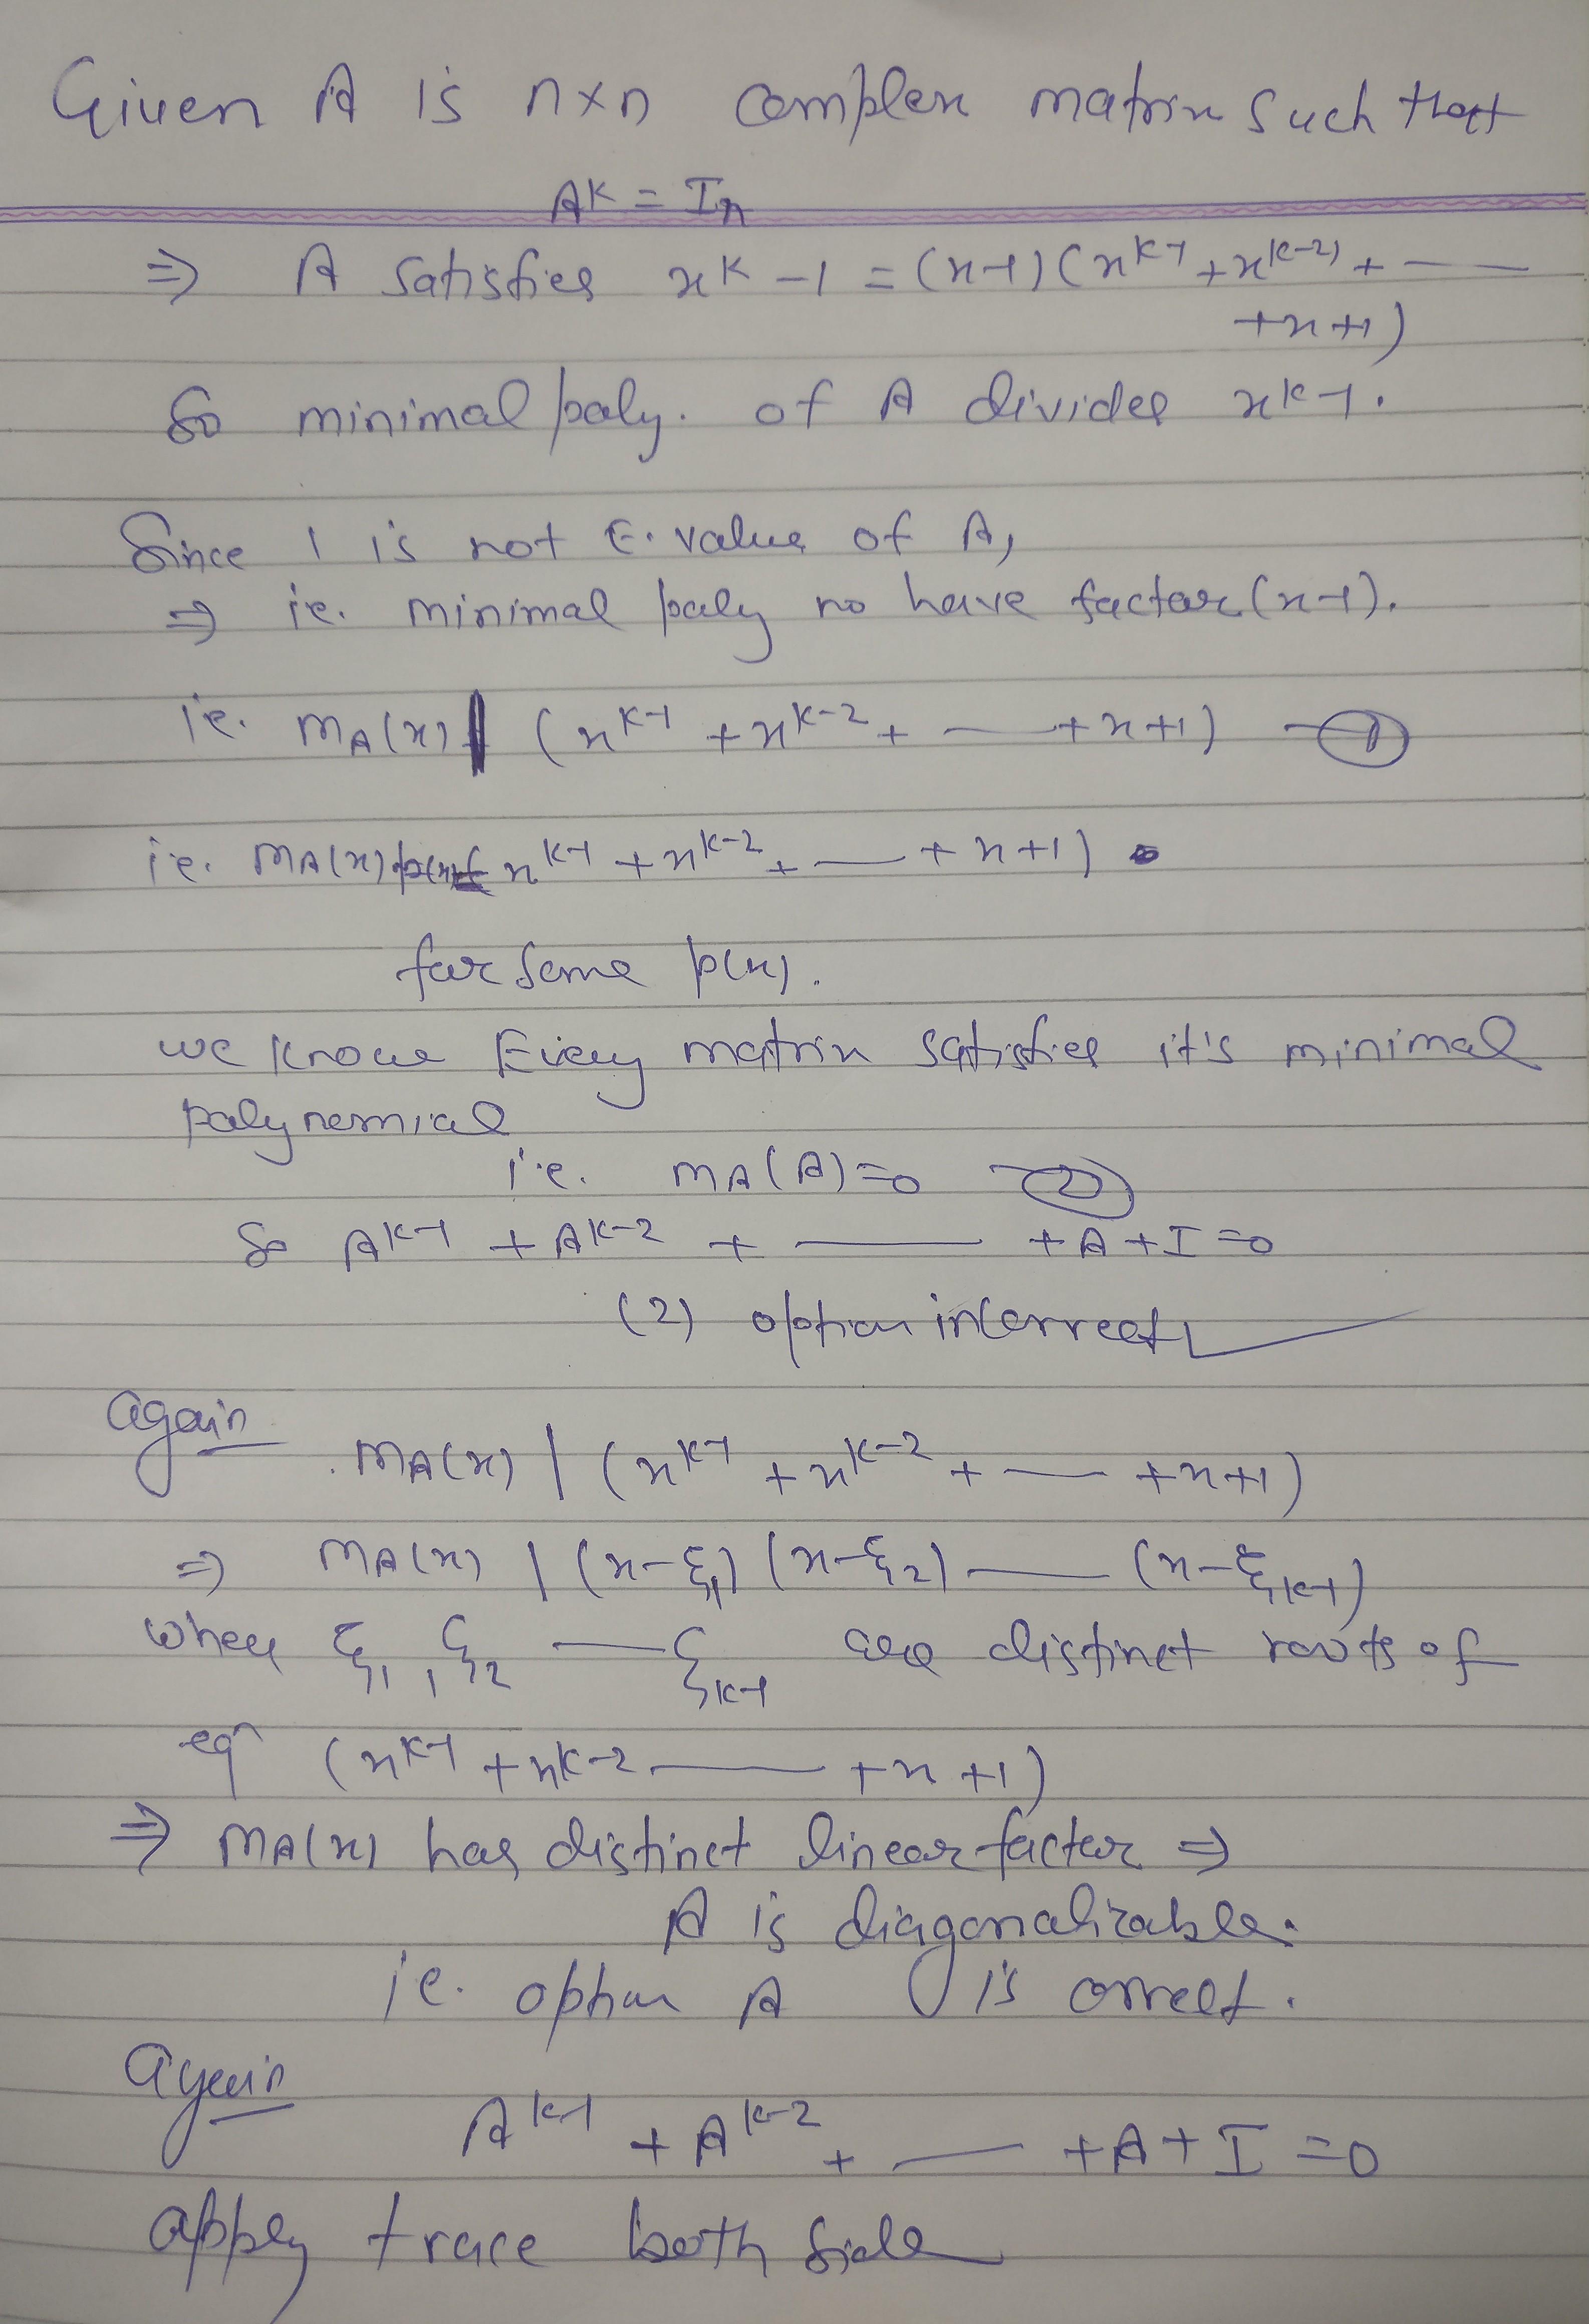 Given A is n×n complex matrix such that
A^k = I_n
⇒ A satisfies x^k - 1 = (x-1)(x^{k-1} + x^{k-2} + ——
+x+1)
So minimal poly. of A divides x^k-1.
Since 1 is not E. value of A,
⇒ ie. minimal poly no have factor (x-1).
ie. m_A(x) | (x^{k-1} + x^{k-2} + —— + x+1) —①
ie. m_A(x) p(x) = x^{k-1} + x^{k-2} + —— + x+1)
for some p(x).
we know Every matrix satisfies it's minimal
polynomial
i.e. m_A(A)=0 —②
So A^{k-1} + A^{k-2} + —— + A + I = 0
(2) option incorrect
Again
m_A(x) | (x^{k-1} + x^{k-2} + —— + x+1)
⇒ m_A(x) | (x-ξ_1) (x-ξ_2) —— (x-ξ_{k-1})
where ξ_1, ξ_2 —— ξ_{k-1} are distinct roots of
eqn (x^{k-1} + x^{k-2} —— + x +1)
⇒ m_A(x) has distinct linear factor ⇒
A is diagonalizable.
ie. option A is correct.
Again
A^{k-1} + A^{k-2} + —— + A + I = 0
apply trace both side